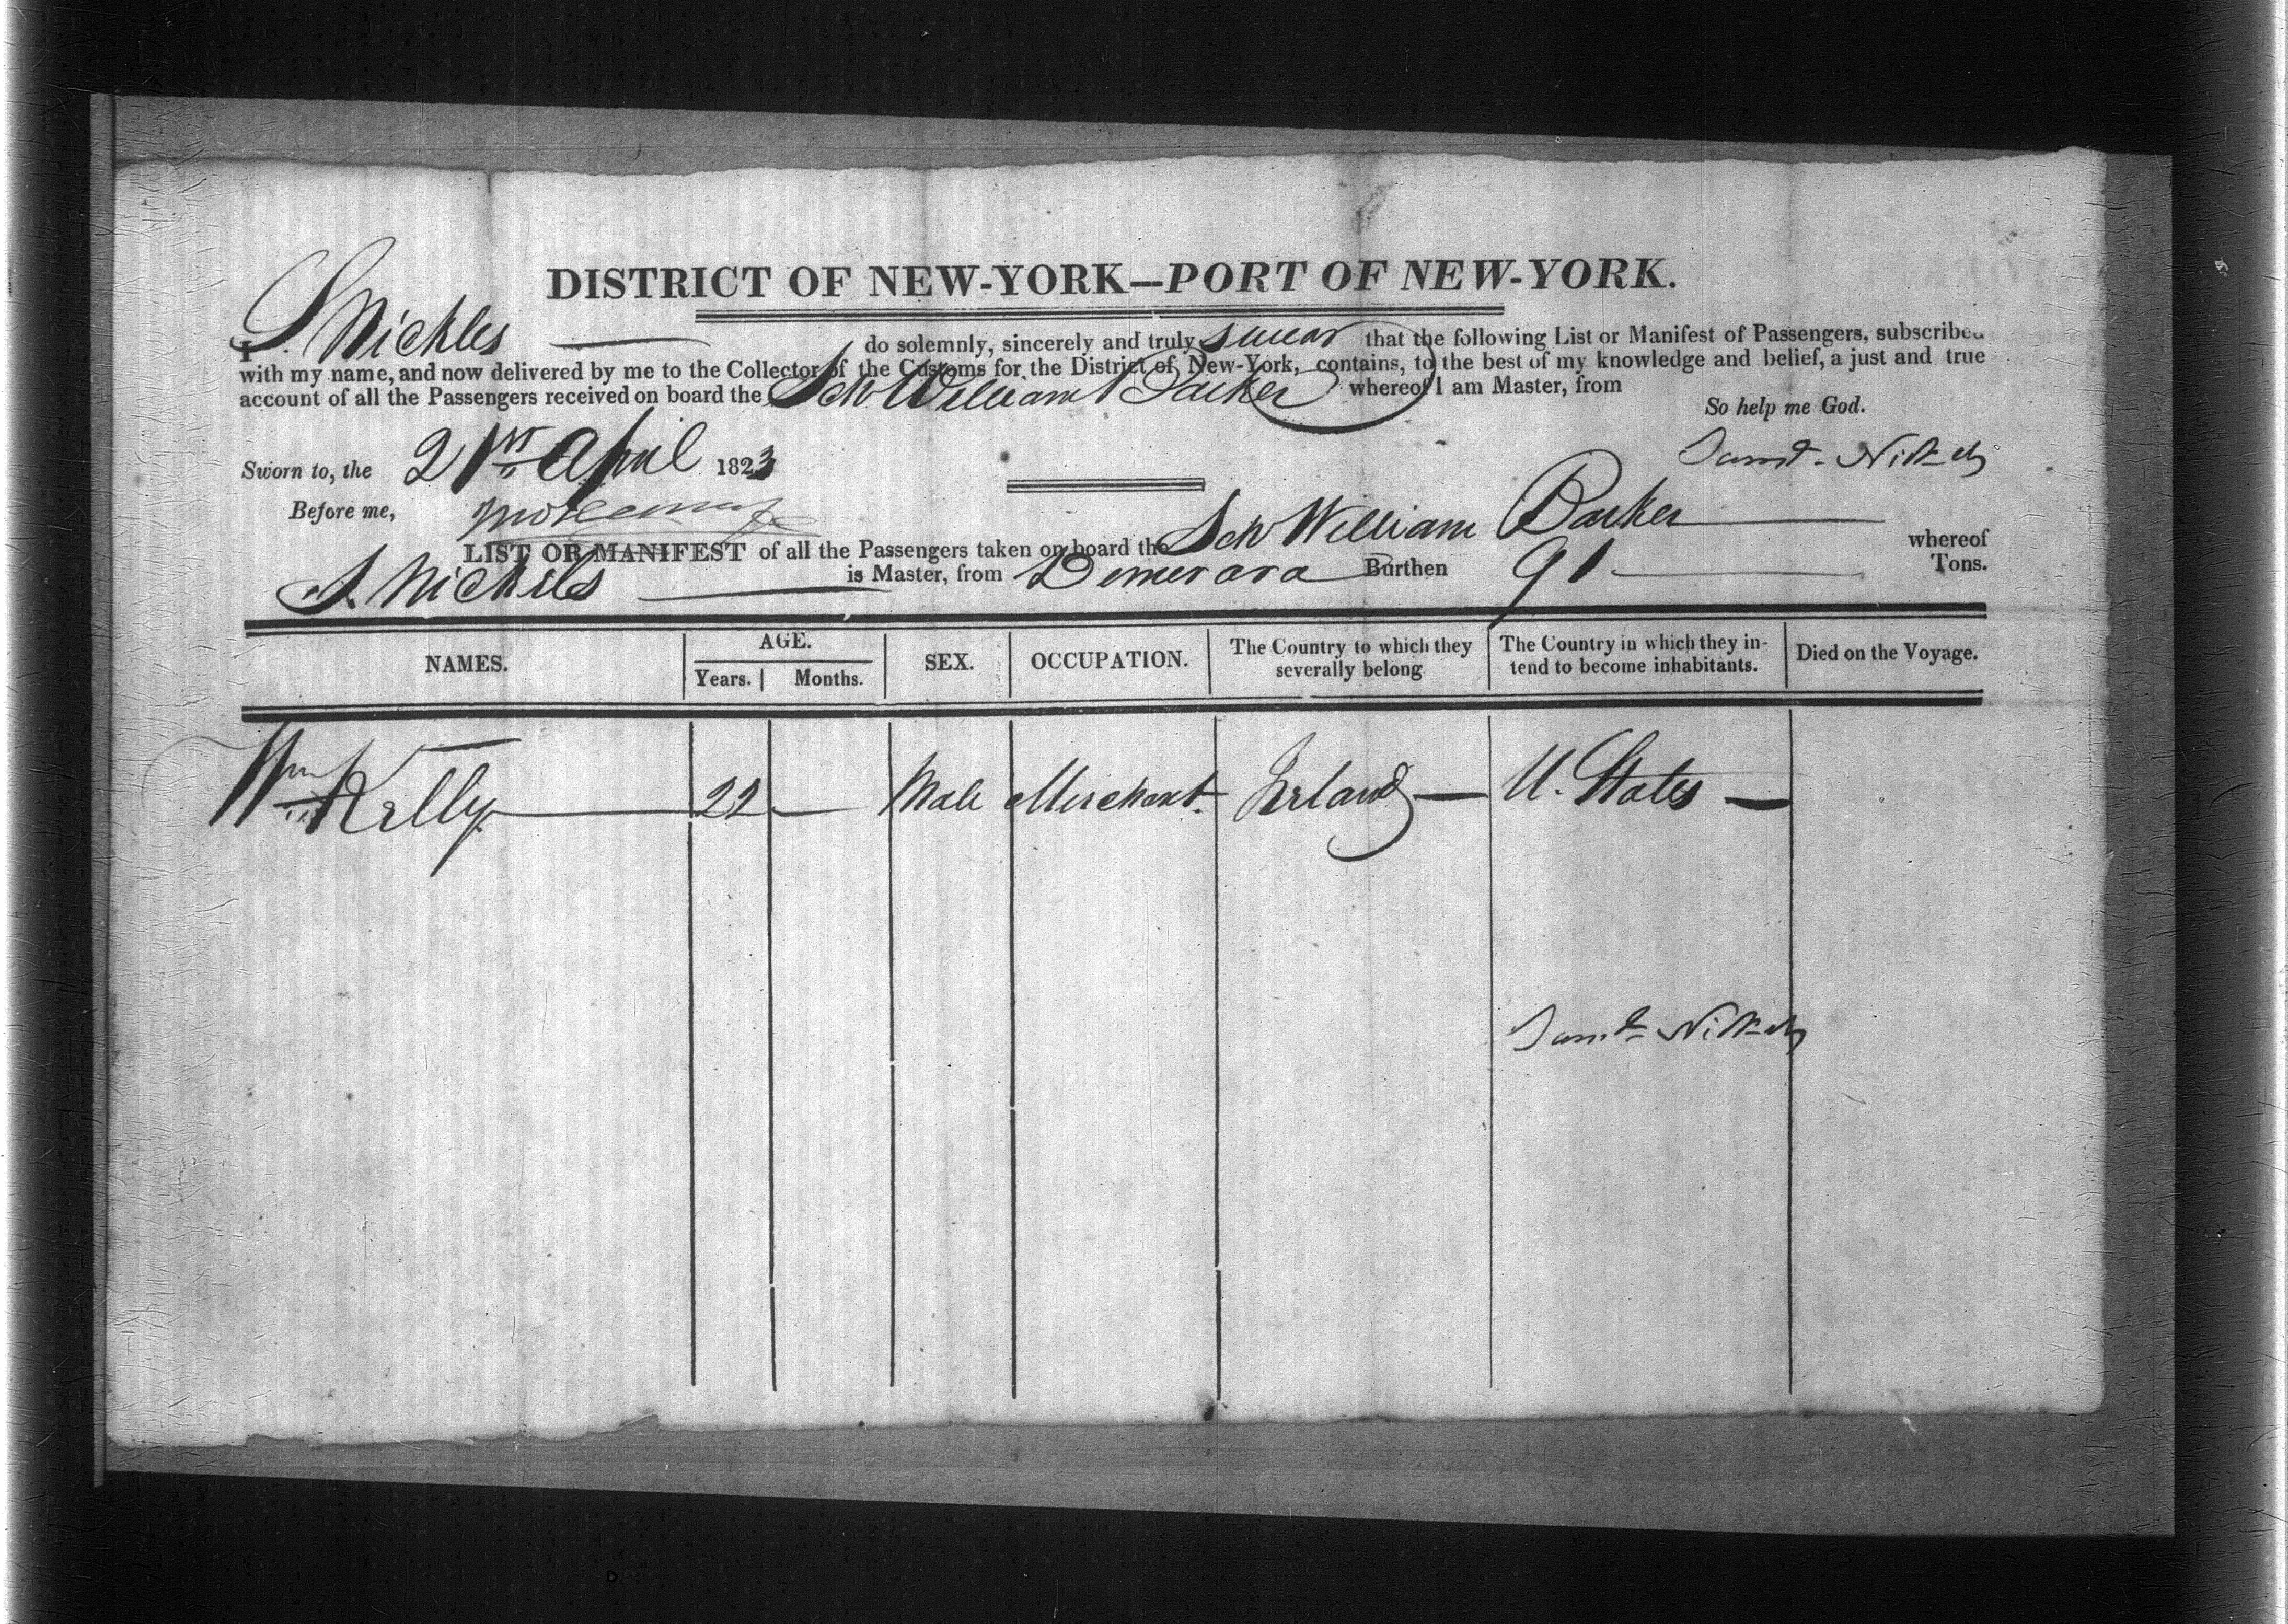 DISTRICT OF NEW-YORK—PORT OF NEW-YORK.
I S Nickles do solemnly, sincerely and truly swear that the following List or Manifest of Passengers, subscribed
with my name, and now delivered by me to the Collector of the Customs for the District of New-York, contains, to the best of my knowledge and belief, a just and true
account of all the Passengers received on board the Sch William Barker whereof I am Master, from
So help me God.
Saml. Nickels
Sworn to, the 21st April 1823
Before me,
LIST OR MANIFEST of all the Passengers taken on board the Sch William Barker whereof
S. Nickels is Master, from Demerara Burthen 91 Tons.
NAMES. AGE. SEX. OCCUPATION. The Country to which they severally belong The Country in which they in-tend to become inhabitants. Died on the Voyage.
Years. Months.
Wm Kelly 22 — Male Merchant Ireland — U. States —
Saml Nickels